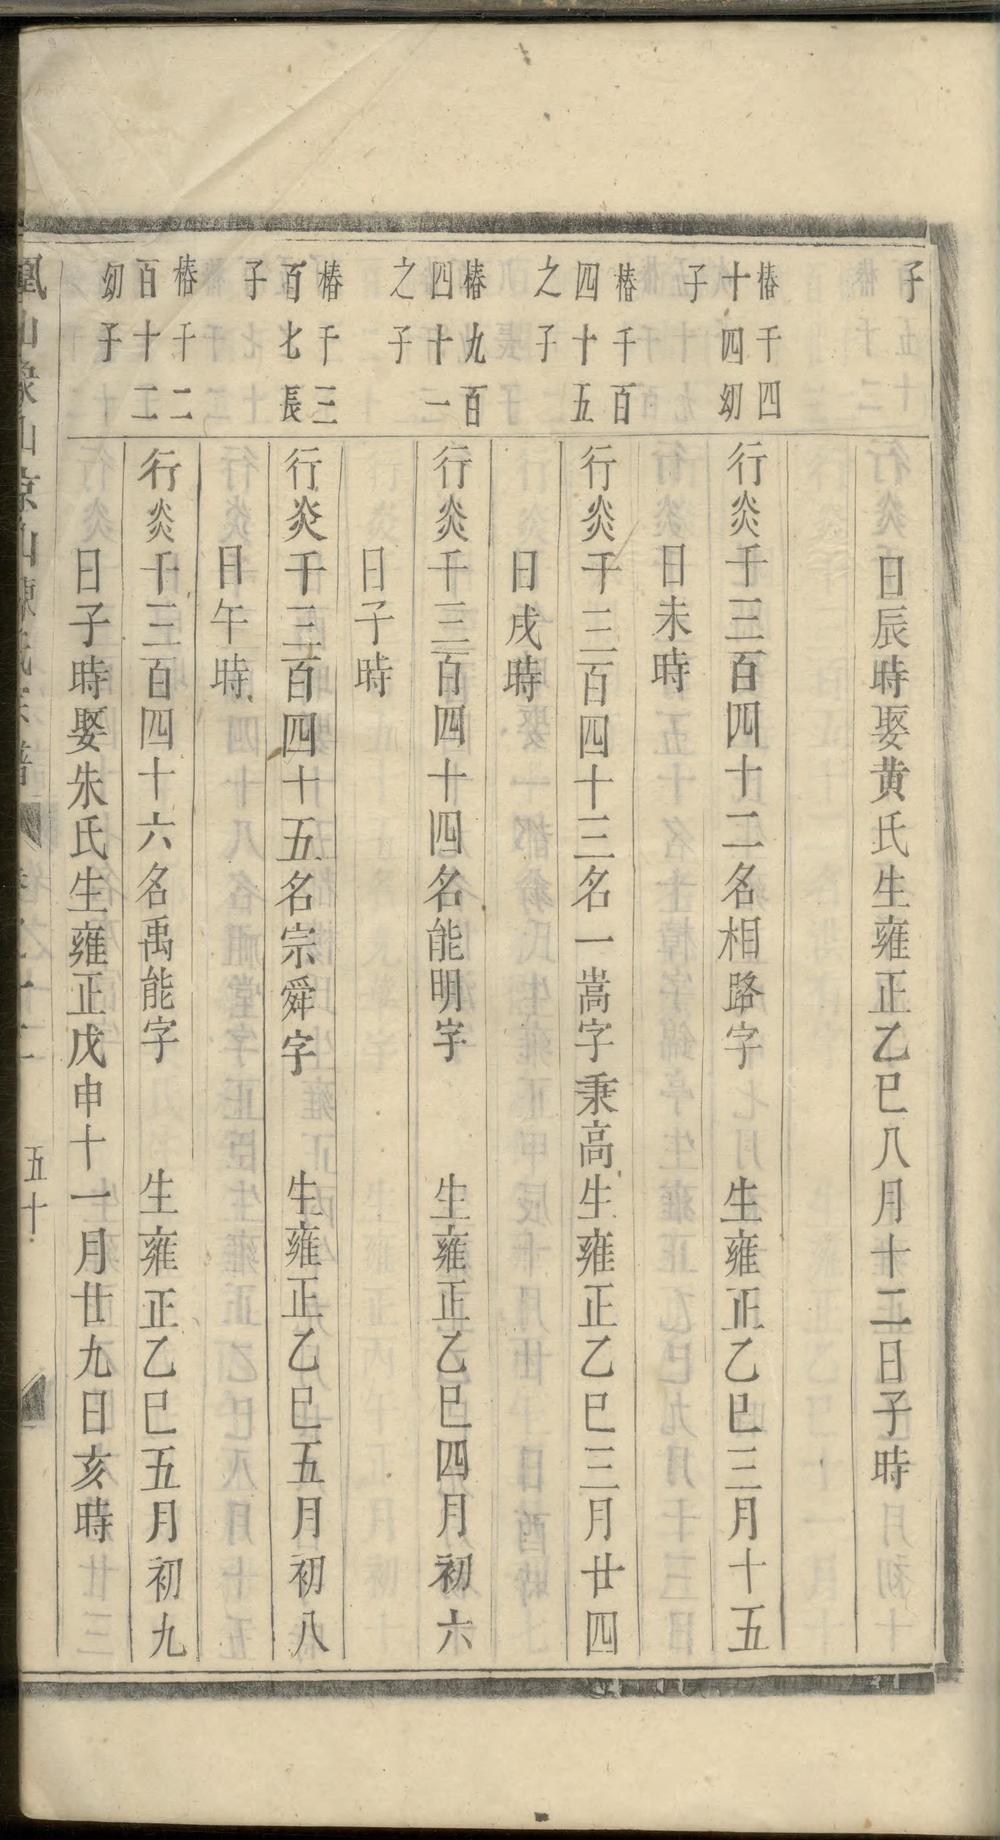 子
日辰時娶黄氏生雍正乙巳八月十二日子時
椿千四
十四幼
子
行炎千三百四十二名相路字　生雍正乙巳三月十五
日未時
椿千百
四十五
之子
行炎千三百四十三名一嵩字秉高生雍正乙巳三月廿四
日戌時
椿九百
四十一
之子
行炎千三百四十四名能明字　生雍正乙巳四月初六
日子時
椿千三
百七長
子
行炎千三百四十五名宗舜字　生雍正乙巳五月初八
日午時
椿千二
百十二
幼子
行炎千三百四十六名禹能字　生雍正乙巳五月初九
日子時娶朱氏生雍正戊申十一月廿九日亥時
五十